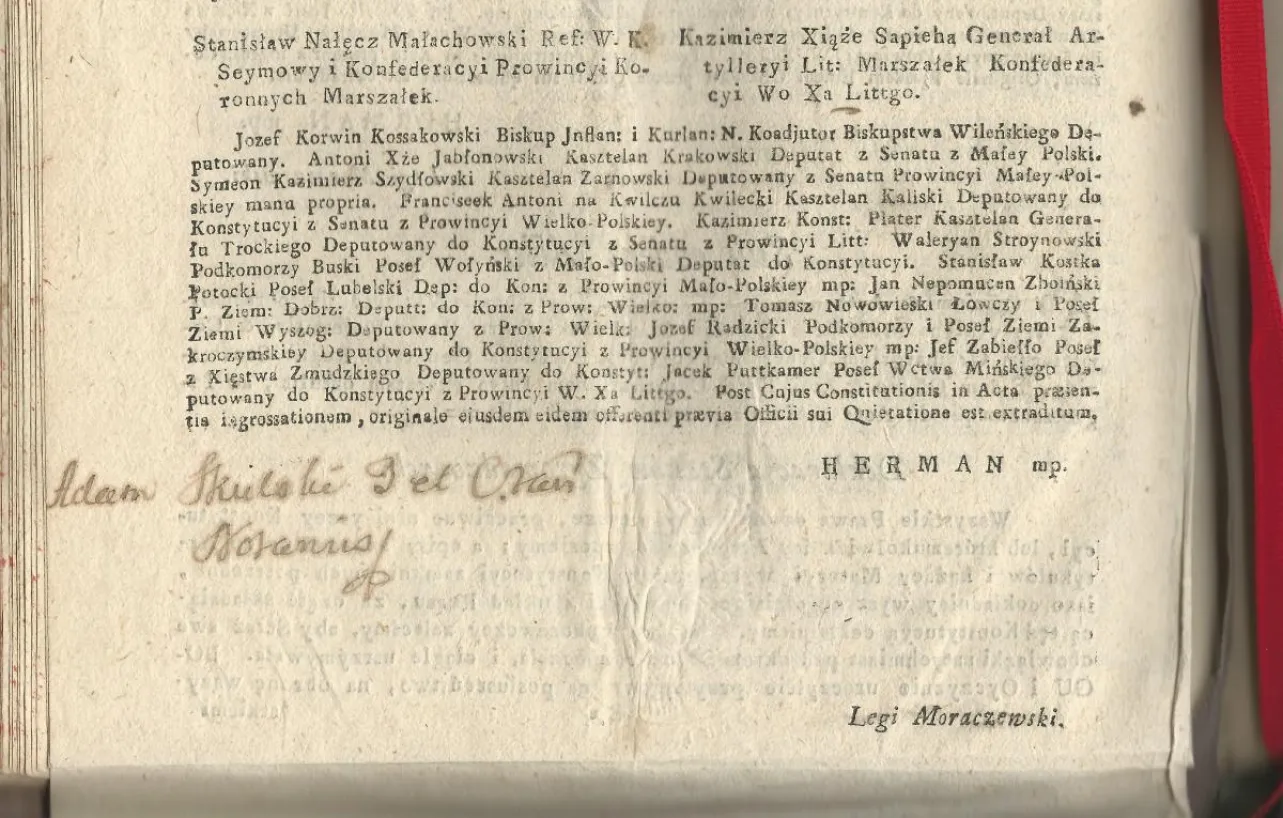 Stanisław Nałęcz Małachowski Ref: W. K.
Seymowy i Konfederacyi Prowincyi Ko-
ronnych Marszałek.
Kazimierz Xiąże Sapieha Generał Ar-
tylleryi Lit: Marszałek Konfedera-
cyi Wo Xa Littgo.
Jozef Korwin Kossakowski Biskup Jnflan: i Kurlan: N. Koadjutor Biskupstwa Wileńskiego De-
putowany. Antoni Xże Jabłonowski Kasztelan Krakowski Deputat z Senatu z Małey Polski.
Symeon Kazimierz Szydłowski Kasztelan Zarnowski Deputowany z Senatu Prowincyi Małey-Pol-
skiey manu propria. Franciszek Antoni na Kwilczu Kwilecki Kasztelan Kaliski Deputowany do
Konstytucyi z Senatu z Prowincyi Wielko-Polskiey. Kazimierz Konst: Plater Kasztelan Genera-
łu Trockiego Deputowany do Konstytucyi z Senatu z Prowincyi Litt: Waleryan Stroynowski
Podkomorzy Buski Poseł Wołyński z Mało-Polski Deputat do Konstytucyi. Stanisław Kostka
Potocki Poseł Lubelski Dep: do Kon: z Prowincyi Mało-Polskiey mp: Jan Nepomucen Zboiński
P. Ziem: Dobrz: Deputt: do Kon: z Prow: Wielko: mp: Tomasz Nowowieski Łowczy i Poseł
Ziemi Wyszog: Deputowany z Prow: Wielk: Jozef Radzicki Podkomorzy i Poseł Ziemi Za-
kroczymskiey Deputowany do Konstytucyi z Prowincyi Wielko-Polskiey mp: Jef Zabiełło Poseł
z Xięstwa Zmudzkiego Deputowany do Konstyt: Jacek Puttkamer Poseł Wctwa Mińskiego De-
putowany do Konstytucyi z Prowincyi W. Xa Littgo. Post Cujus Constitutionis in Acta præsen-
tia ingrossationem, originale ejusdem eidem offerenti prævia Officii sui Quietatione est extraditum.
HERMAN mp.
Adam Skulski
Notarius
Legi Moraczewski.